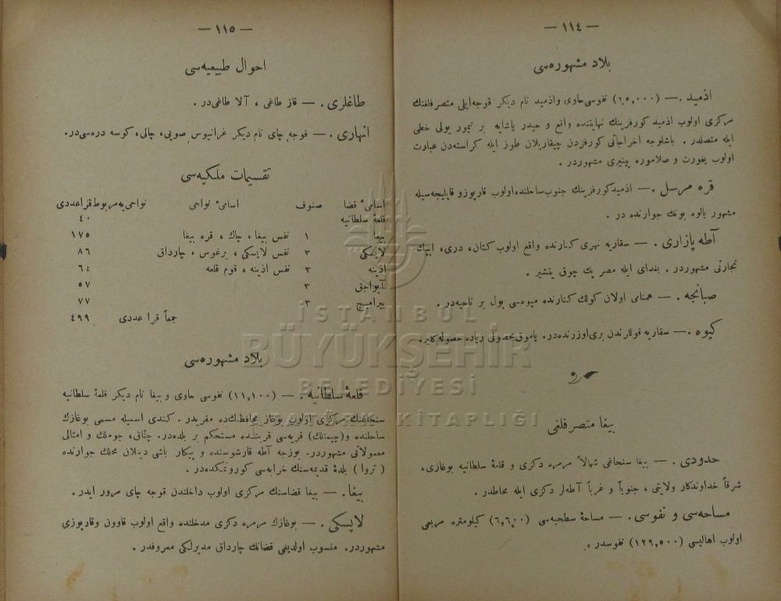 — ١١٤ —
بلاد مشهوره‌سی
اذمید . — (٢٥,٠٠٠) نفوسی حاوی واذمید نام دیكر قوجه‌ایلی متصرفلغنك
مركزی اولوب اذمید كورفزینك نهایتنده واقع و حیدر پاشایه بر تیمور یولی خطی
ایله متصلدر . باشلوجه اخراجاتی كورفزدن چیقاریلان طوز ایله كراسته‌دن عبارت
اولوب یغورت و صلاموره پینیری مشهوردر .
قره مرسل . — اذمیدكورفزینك جنوب ساحلنده‌اولوب قارپوزو قاپلیجه‌سیله
مشهور یالوه بونك جوارنده در .
آطه پازاری . — سقاریه نهری كنارنده واقع اولوب كتان ، دری ، ایپك
تجارتی مشهوردر . بغدای ایله مصر پك چوق یتشیر .
صبانجه . — همنامی اولان كولك كنارنده میوه‌سی بول بر ناحیه‌در .
كیوه . — سقاریه قوللرندن بری‌اوزرنده‌در. پاموق‌محصولی زیاده حصوله‌كلیر.
بیغا متصرفلغی
حدودی . — بیغا سنجاغی شمالاً مرمره دكزی و قلعهٔ سلطانیه بوغازی،
شرقاً خداوندكار ولایتی ، جنوباً و غرباً آطه‌لر دكزی ایله محاطدر .
مساحه‌سی و نفوسی . — مساحهٔ سطحیه‌سی كیلومتره مربعی
اولوب اهالیسی (١٢٩,٥٠٠) نفوسدر .
— ١١٥ —
احوال طبیعیه‌سی
طاغلری . — قاز طاغی ، آلا طاغی‌در .
انهاری . — قوجه چای نام دیكر غرانیوس صویی ، چالی ، كوسه دره‌سی‌در.
تقسیمات ملكیه‌سی
اسامیٔ قضا صنوف اسامیٔ نواحی نواحی‌یه مربوط قرا عددی
قلعهٔ سلطانیه ٤٠
بیغا ١ نفس بیغا ، چاك ، قره بیغا ١٧٥
لاپسكی ٣ نفس لاپسكی ، برغوس ، چارداق ٨٦
اذینه ٣ نفس اذینه ، قوم قلعه ٦٤
آیواجق ٣ ٥٧
بیرامیج ٣ ٧٧
جمعاً قرا عددی ٤٩٩
بلاد مشهوره‌سی
قلعهٔ سلطانیه . — (١١,١٠٠) نفوسی حاوی و بیغا نام دیكر قلعهٔ سلطانیه
سنجاغنك مركزی اولوب بوغاز محافظلكنده مقریدر . كندی اسمیله مسمی بوغازك
ساحلنده و(چیمنلك) قریه‌سی قربنده مستحكم بر بلده‌در. چناق، جوملك و امثالی
معمولاتی مشهوردر. بوزجه آطه قارشوسنده و پیكار باشی دینلان محلك جوارنده
( تروا ) بلدهٔ قدیمه‌سنك خرابه‌سی كورونمكده‌در .
بیغا . — بیغا قضاسنك مركزی اولوب داخلندن قوجه چای مرور ایدر .
لاپسكی . — بوغازك مرمره دكزی مدخلنده واقع اولوب قاوون وقارپوزی
مشهوردر. منسوب اولدیغی قضانك چارداق مدیرلكی معروفدر .
İSTANBUL
BÜYÜKŞEHİR
BELEDİYESİ
ATATÜRK KİTAPLIĞI